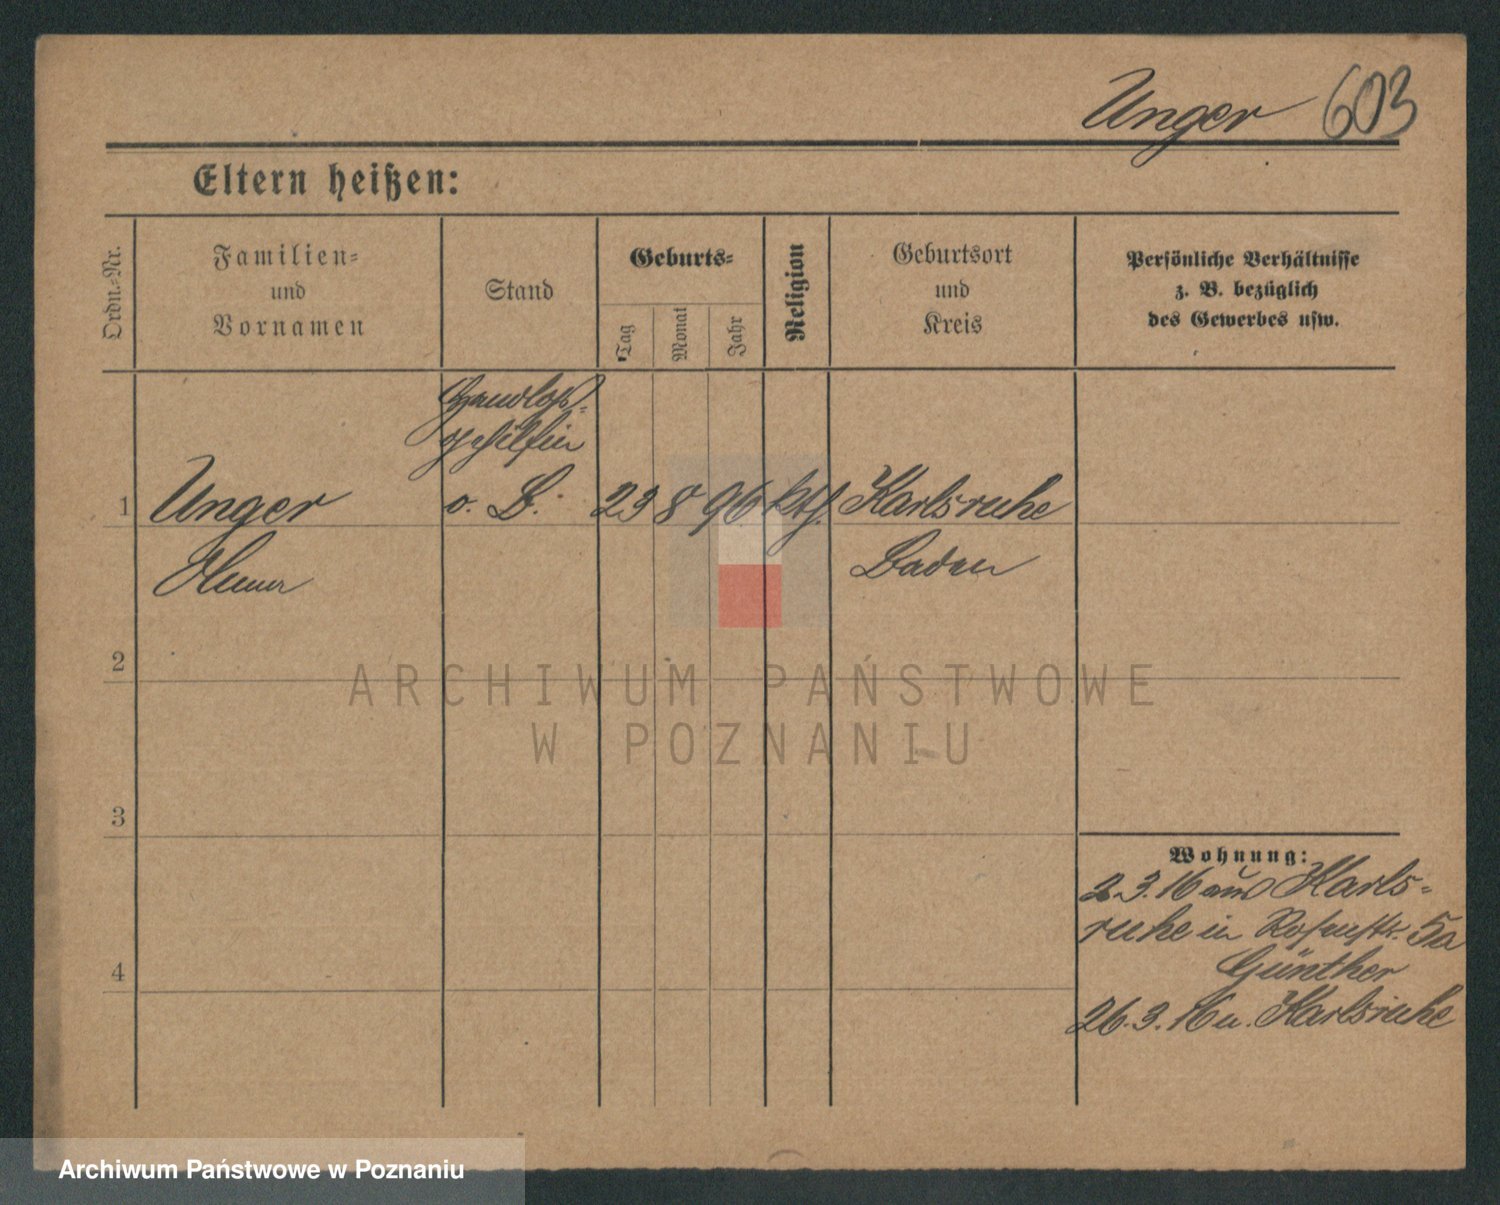 Unger 603
Eltern heißen:
Ordn.-Nr.
Familien-
und
Vornamen
Stand
Geburts-
Tag
Monat
Jahr
Religion
Geburtsort
und
Kreis
Persönliche Verhältnisse
z. B. bezüglich
des Gewerbes usw.
Handlgs-
gehilfin
1 Unger o. B. 23 8 96 kth. Karlsruhe
Baden
2
ARCHIWUM PAŃSTWOWE
W POZNANIU
3
Wohnung:
2.3.16 aus Karls-
ruhe in Rosenstr. 5a
Günther
4
26.3.16 n. Karlsruhe
Archiwum Państwowe w Poznaniu